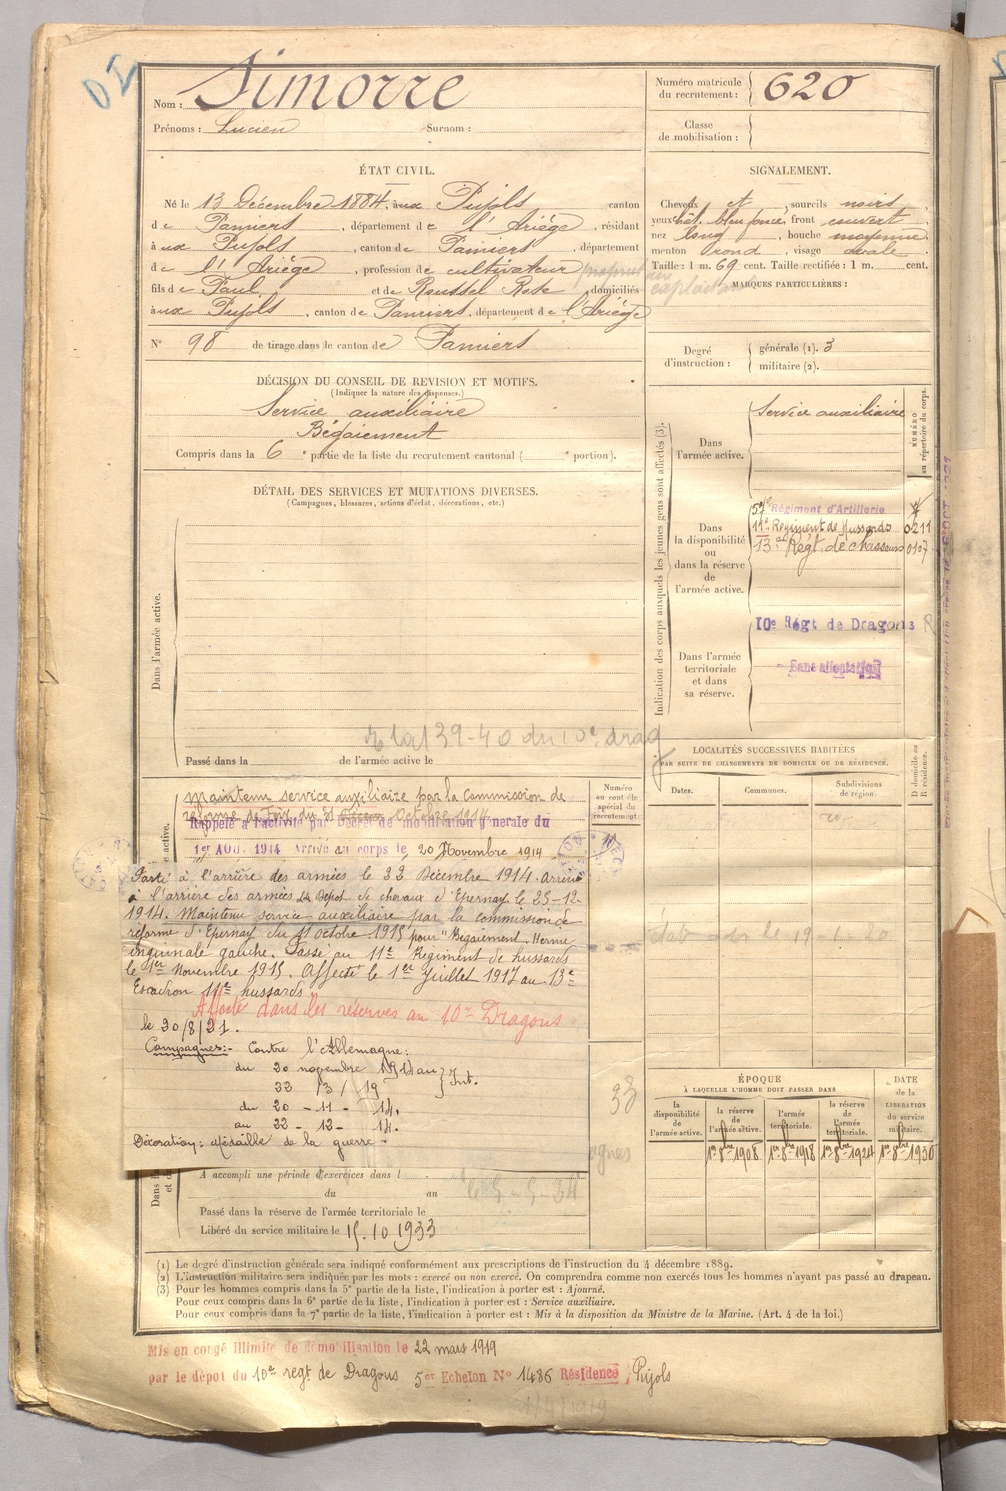 DI
Nom : Simorre
Prénoms : Lucien Surnom :
Numéro matricule du recrutement : 620
Classe de mobilisation :
ÉTAT CIVIL.
Né le 13 Décembre 1884, à aux Pujols canton
de Pamiers, département de l'Ariège, résidant
à aux Pujols, canton de Pamiers, département
de l'Ariège, profession de cultivateur
fils de Paul et de Roussel Rose, domiciliés
à aux Pujols, canton de Pamiers, département de l'Ariège
N° 98 de tirage dans le canton de Pamiers
SIGNALEMENT.
Cheveux et sourcils noirs,
yeux chât. bleu foncé, front couvert
nez long, bouche moyenne
menton rond, visage ovale.
Taille : 1 m. 69 cent. Taille rectifiée : 1 m. cent.
MARQUES PARTICULIÈRES :
Degré d'instruction : générale (1). 3
militaire (2).
DÉCISION DU CONSEIL DE REVISION ET MOTIFS.
(Indiquer la nature des dispenses.)
Service auxiliaire
Bégaiement
Compris dans la 6e partie de la liste du recrutement cantonal ( e portion).
DÉTAIL DES SERVICES ET MUTATIONS DIVERSES.
(Campagnes, blessures, actions d'éclat, décorations, etc.)
Dans l'armée active.
39-40 du 10e drag
Passé dans la de l'armée active le
Indication des corps auxquels les jeunes gens sont affectés (3).
NUMÉRO au répertoire du corps.
Dans l'armée active.
Service auxiliaire
Dans la disponibilité ou dans la réserve de l'armée active.
57e Régiment d'Artillerie
11e Régiment de Hussards 0211
13e Régt. de chasseurs 0107
Dans l'armée territoriale et dans sa réserve.
10e Régt de Dragons R
Sans affectation
LOCALITÉS SUCCESSIVES HABITÉES
PAR SUITE DE CHANGEMENTS DE DOMICILE OU DE RÉSIDENCE.
Dates. Communes. Subdivisions de région. D domicile ou R résidence.
Numéro au contrôle spécial du recrutement.
Maintenu service auxiliaire par la Commission de
réforme de Foix du 31 Octobre 1914.
Rappelé à l'activité par Décret de mobilisation générale du
1er AOUT 1914 Arrivé au corps le 20 Novembre 1914
Parti à l'arrière des armées le 22 Décembre 1914. Arrivé
à l'arrière des armées Dépot de chevaux d'Epernay le 25-12-
1914. Maintenu service auxiliaire par la commission de
réforme d'Epernay du 11 octobre 1915 pour "Bégaiement. Hernie
inguinale gauche. Passé au 11e Régiment de hussards
le 1er Novembre 1915. Affecté le 1er Juillet 1917 au 13e
Escadron 11e hussards
Affecté dans les réserves au 10e Dragons
le 20/8/21.
Campagnes :- Contre l'Allemagne :
du 20 novembre 1914 au
22 /3/ 19 } Int.
du 20 - 11 - 14.
au 22 - 12 - 14.
Décoration : Médaille de la guerre -
ÉPOQUE
À LAQUELLE L'HOMME DOIT PASSER DANS
la disponibilité de l'armée active.
la réserve de l'armée active.
l'armée territoriale.
la réserve de l'armée territoriale.
DATE de la LIBÉRATION du service militaire.
1er 8bre 1908 1er 8bre 1918 1er 8bre 1924 1er 8bre 1930
A accompli une période d'exercices dans l
du au
Passé dans la réserve de l'armée territoriale le
Libéré du service militaire le 15.10 1933
(1) Le degré d'instruction générale sera indiqué conformément aux prescriptions de l'instruction du 4 décembre 1889.
(2) L'instruction militaire sera indiquée par les mots : exercé ou non exercé. On comprendra comme non exercés tous les hommes n'ayant pas passé au drapeau.
(3) Pour les hommes compris dans la 5e partie de la liste, l'indication à porter est : Ajourné.
Pour ceux compris dans la 6e partie de la liste, l'indication à porter est : Service auxiliaire.
Pour ceux compris dans la 7e partie de la liste, l'indication à porter est : Mis à la disposition du Ministre de la Marine. (Art. 4 de la loi.)
Mis en congé illimité de démobilisation le 22 mars 1919
par le dépot du 10e regt de Dragons 5e Echelon N° 1486 Résidence Pujols